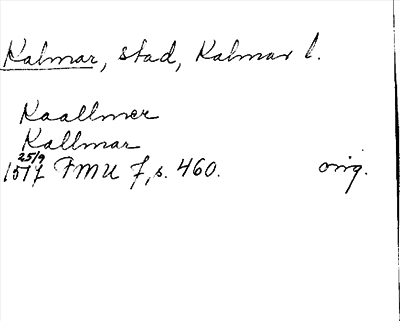 Kalmar, stad, Kalmar l.
Kaallmer
Kallmar
25/9
1517 FMU 7, s. 460. orig.